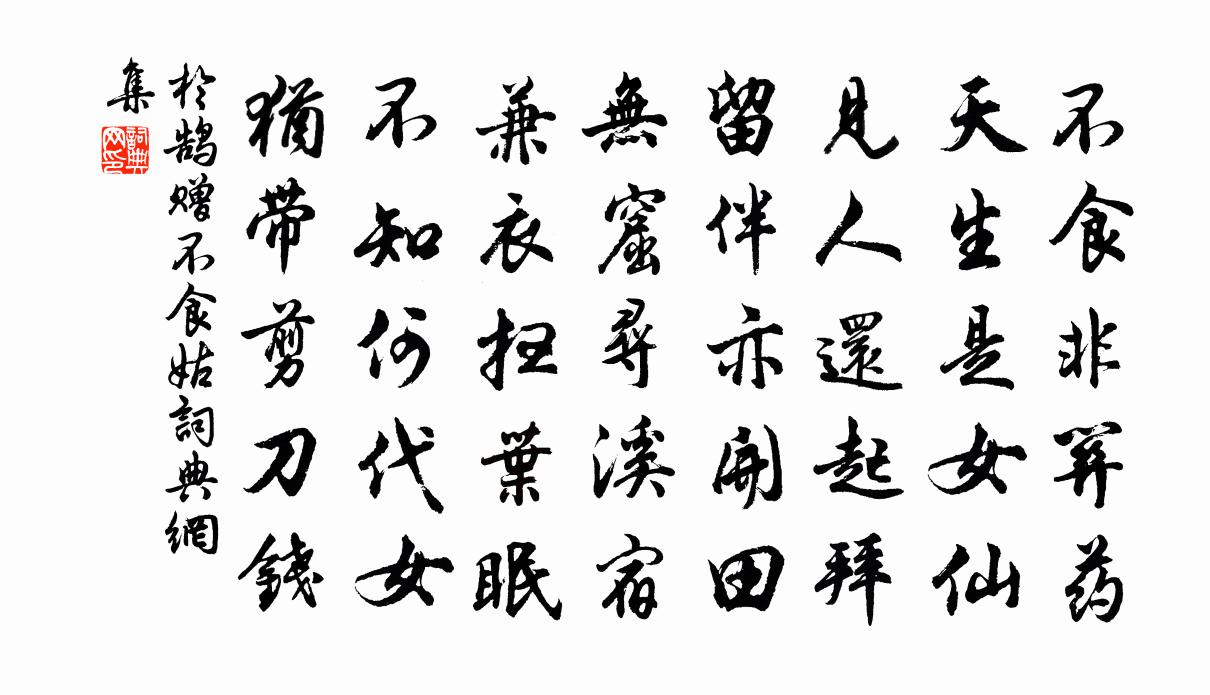 不食非關药
天生是女仙
見人還起拜
留伴亦開田
無窟尋溪宿
兼衣扫葉眠
不知何代女
猶帶剪刀錢
於鹄赠不食姑詞典網
集
詞典
网印